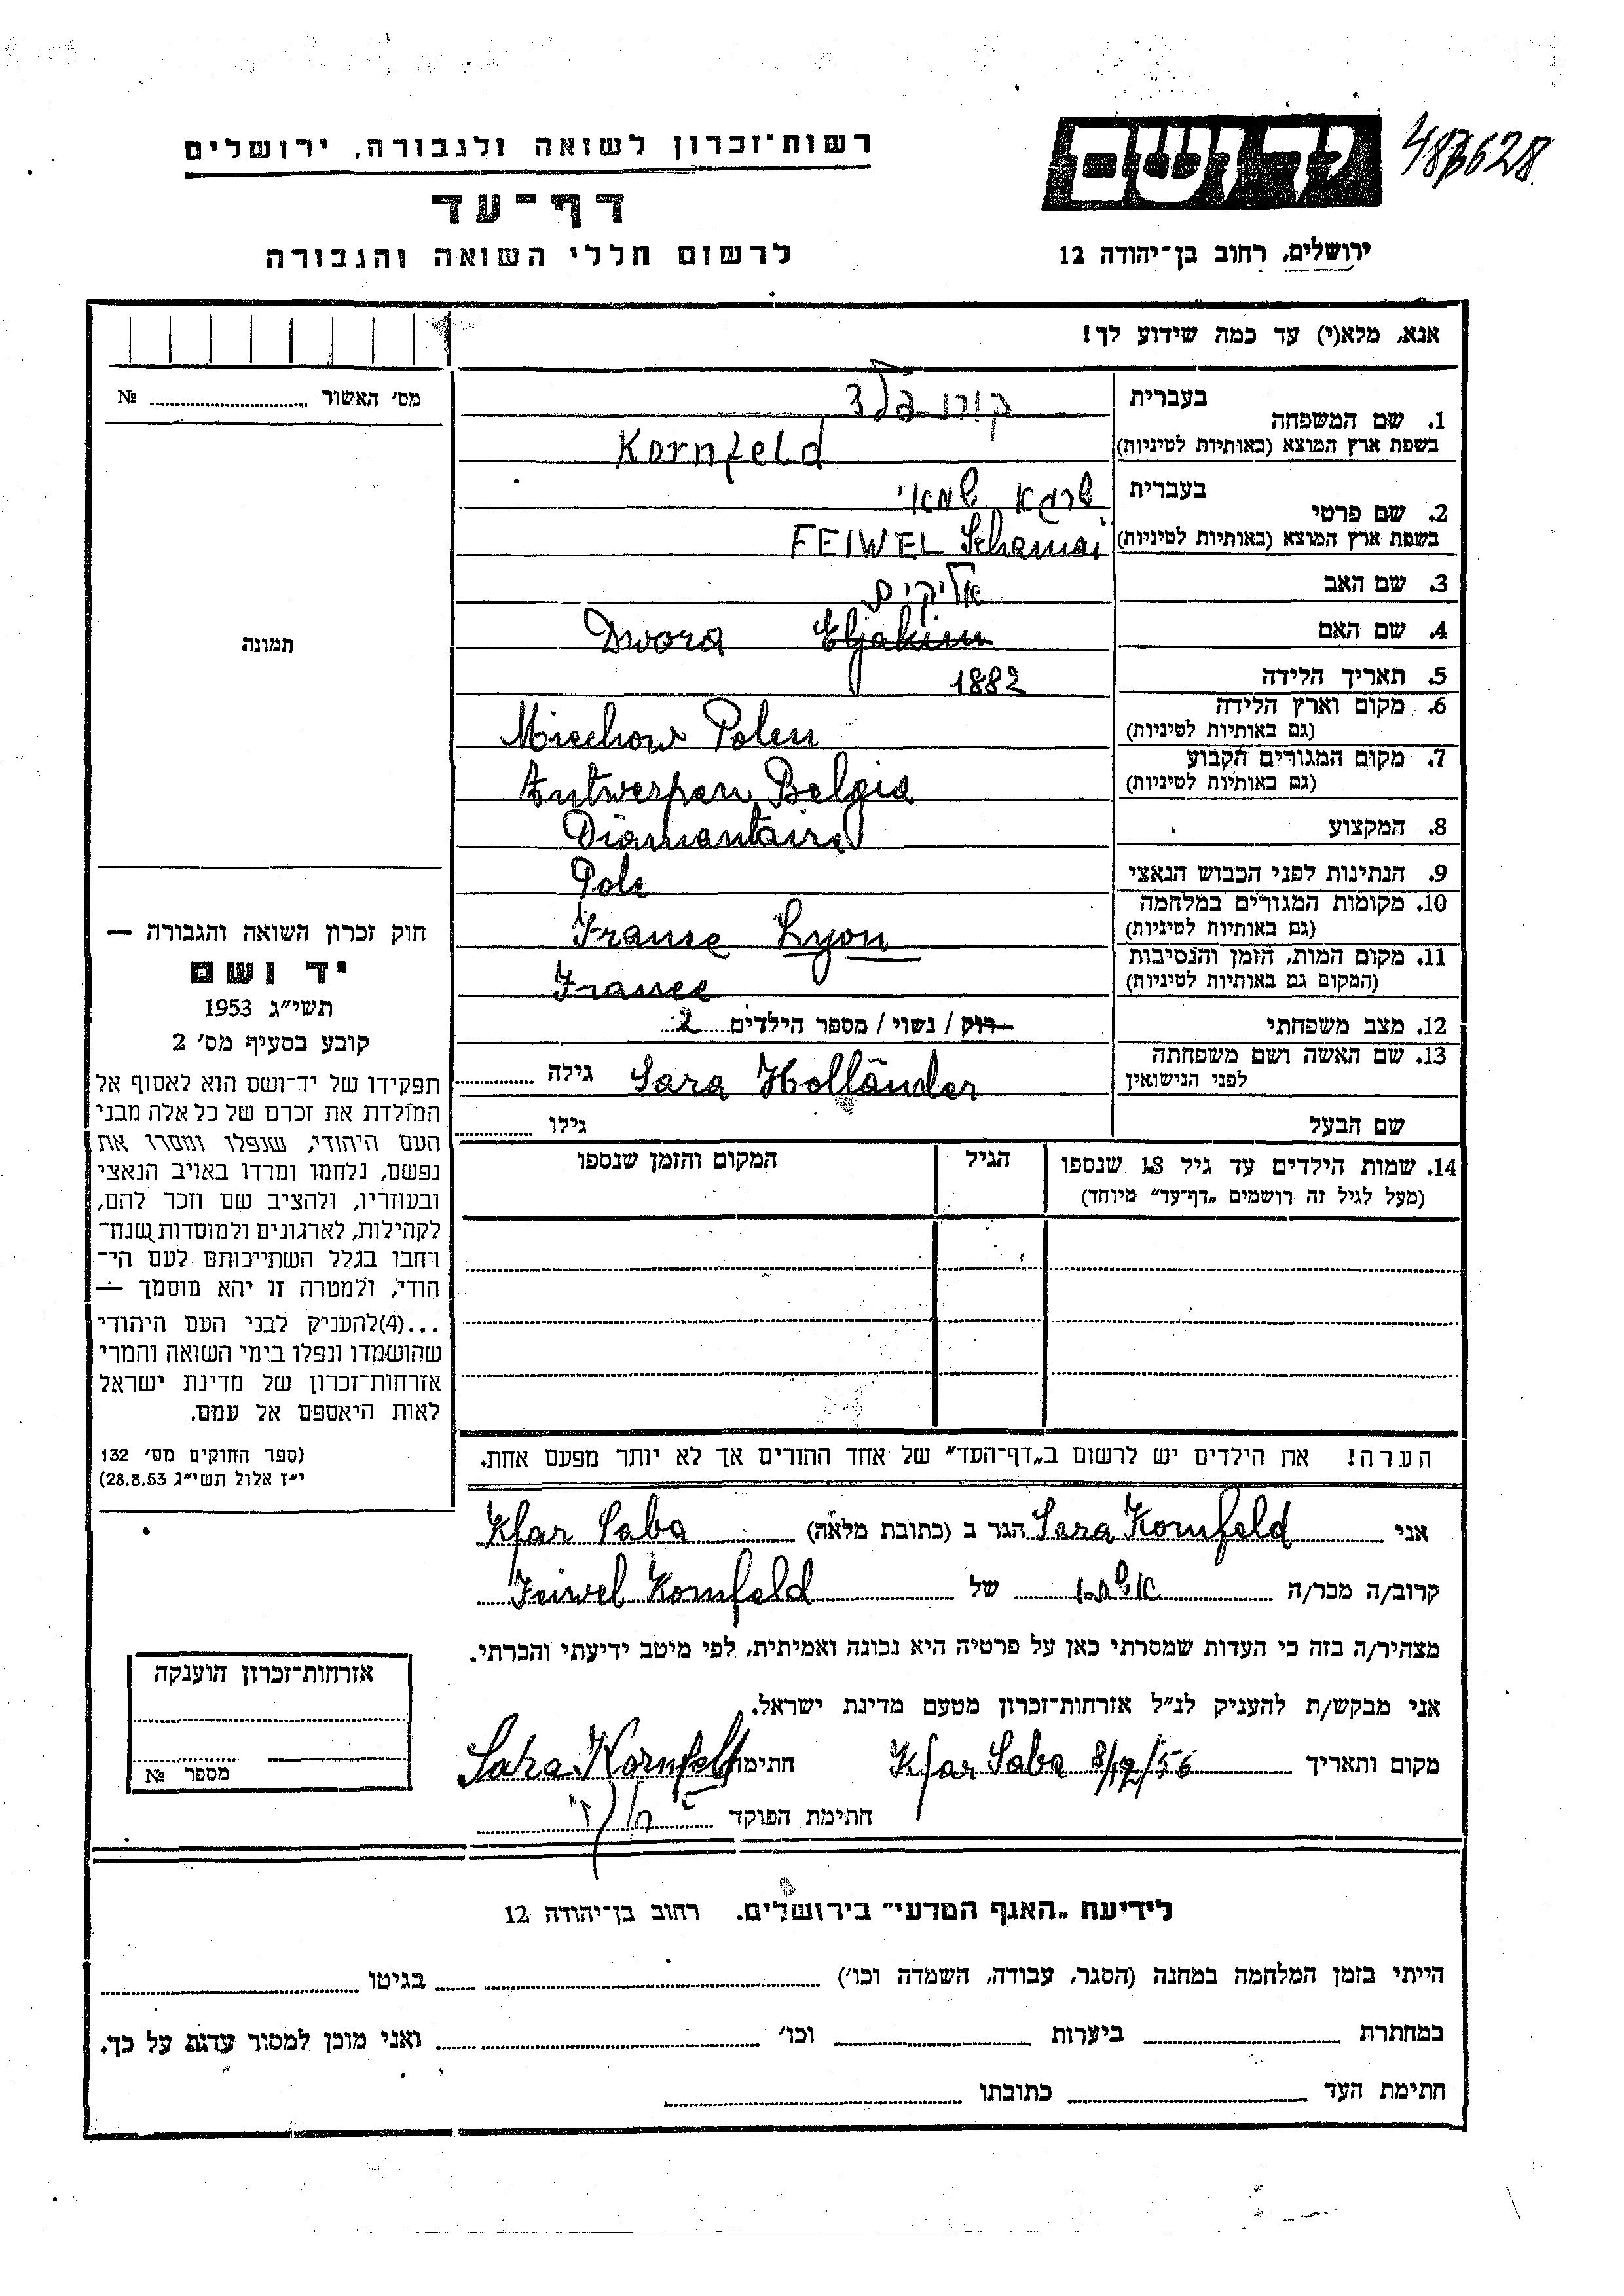 רשות־זכרון לשואה ולגבורה, ירושלים
דף־עד
לרשום חללי השואה והגבורה
ידושם
483628
ירושלים, רחוב בן־יהודה 12
אנא, מלא(י) עד כמה שידוע לך!
מס׳ האשור № 
1. שם המשפחה
בעברית קורנפלד
בשפת ארץ המוצא (באותיות לטיניות) Kornfeld
2. שם פרטי
בעברית שרגא שמאי
בשפת ארץ המוצא (באותיות לטיניות) FEIWEL Schamai
3. שם האב אליקים
4. שם האם Eljakim Dwora
5. תאריך הלידה 1882
6. מקום וארץ הלידה
(גם באותיות לטיניות) Miechow Polen
7. מקום המגורים הקבוע
(גם באותיות לטיניות) Antwerpen Belgia
8. המקצוע Diamantaire
9. הנתינות לפני הכבוש הנאצי Pole
10. מקומות המגורים במלחמה
(גם באותיות לטיניות) France Lyon
11. מקום המות, הזמן והנסיבות
(המקום גם באותיות לטיניות) France
12. מצב משפחתי רוק / נשוי / מספר הילדים 2
13. שם האשה ושם משפחתה
לפני הנישואין Sara Holländer גילה
שם הבעל גילו
14. שמות הילדים עד גיל 18 שנספו
(מעל לגיל זה רושמים „דף־עד” מיוחד)
הגיל
המקום והזמן שנספו
תמונה
חוק זכרון השואה והגבורה —
יד ושם
תשי״ג 1953
קובע בסעיף מס׳ 2
תפקידו של יד־ושם הוא לאסוף אל
המולדת את זכרם של כל אלה מבני
העם היהודי, שנפלו ומסרו את
נפשם, נלחמו ומרדו באויב הנאצי
ובעוזריו, ולהציב שם וזכר להם,
לקהילות, לארגונים ולמוסדות שנח־
רבו בגלל השתייכותם לעם הי־
הודי, ולמטרה זו יהא מוסמך —
...(4)להעניק לבני העם היהודי
שהושמדו ונפלו בימי השואה והמרי
אזרחות־זכרון של מדינת ישראל
לאות היאספם אל עמם.
(ספר החוקים מס׳ 132
י״ז אלול תשי״ג 28.8.53)
הערה! את הילדים יש לרשום ב„דף־העד” של אחד ההורים אך לא יותר מפעם אחת.
אני Sara Kornfeld הגר ב (כתובת מלאה) Kfar Saba
קרוב/ה מכר/ה אשתו של Feiwel Kornfeld
מצהיר/ה בזה כי העדות שמסרתי כאן על פרטיה היא נכונה ואמיתית, לפי מיטב ידיעתי והכרתי.
אני מבקש/ת להעניק לנ״ל אזרחות־זכרון מטעם מדינת ישראל.
מקום ותאריך Kfar Saba 8/12/56 חתימה Sara Kornfeld
חתימת הפוקד
אזרחות־זכרון הוענקה
מספר №
לידיעת „האגף המדעי” בירושלים. רחוב בן־יהודה 12
הייתי בזמן המלחמה במחנה (הסגר, עבודה, השמדה וכו׳) בגיטו
במחתרת ביערות וכו׳ ואני מוכן למסור עדות על כך.
חתימת העד כתובתו